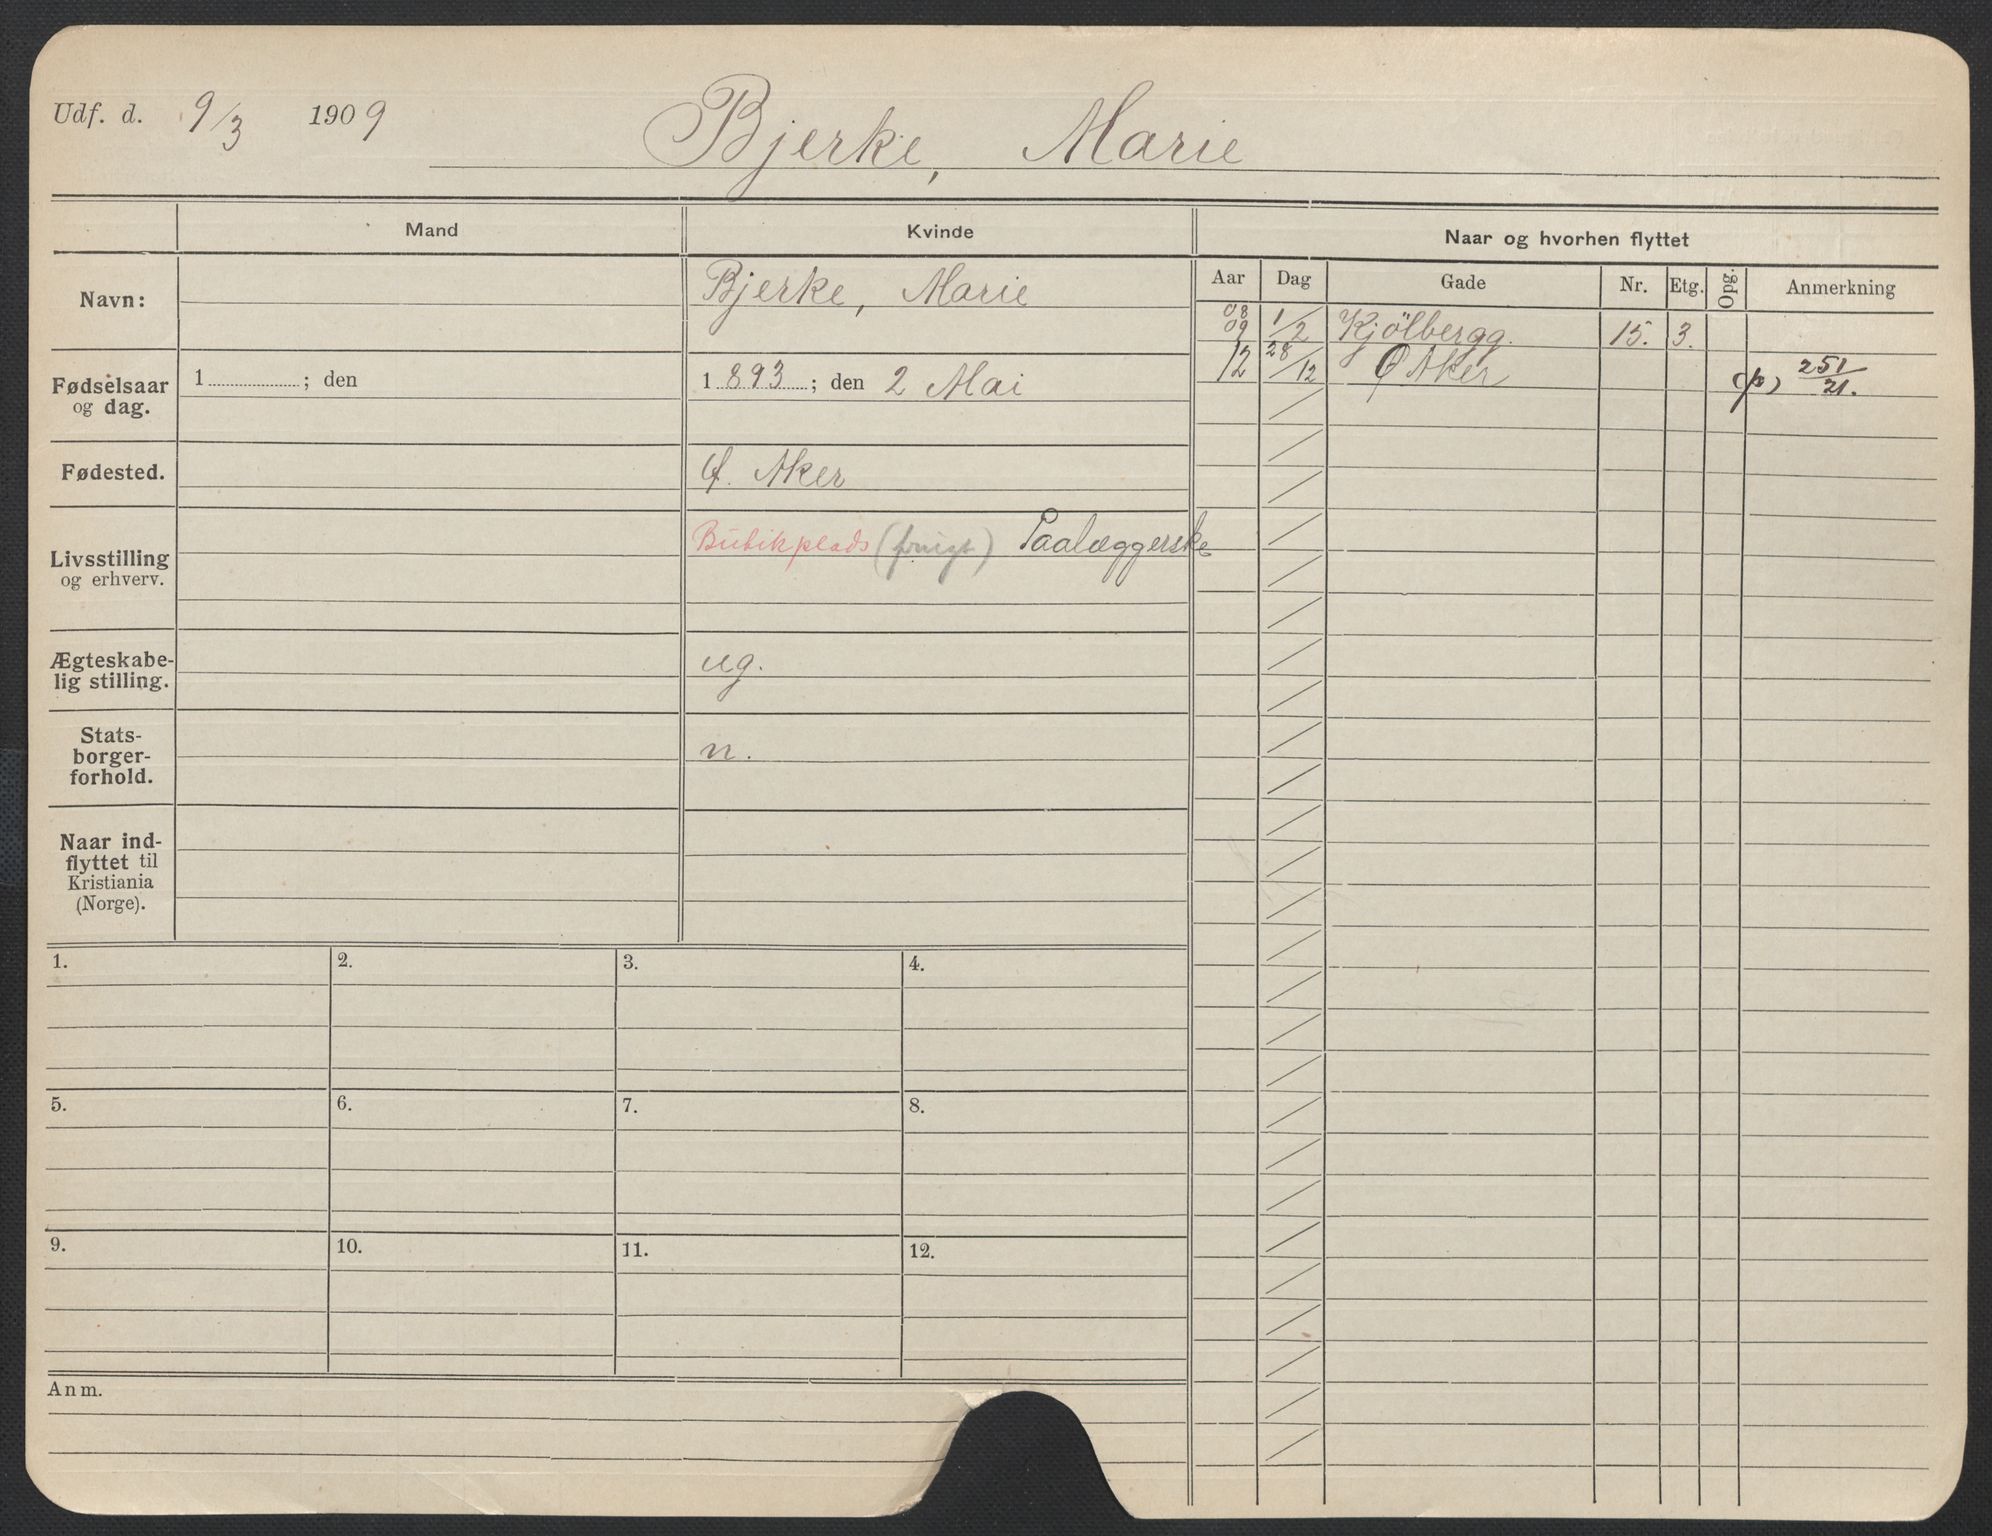 Udf. d. 9/3 1909 Bjerke, Marie
Mand
Kvinde
Naar og hvorhen flyttet
Aar Dag Gade Nr. Etg. Opg. Anmerkning
Navn:
Bjerke, Marie
08
09 1/2 Kjölbergg. 15. 3.
12 28/12 Ø Aker 251/21.
Fødselsaar
og dag.
1 ; den
1893 ; den 2 Mai
Fødested.
Ø. Aker
Livsstilling
og erhverv.
Butikplads Paalæggerske
Ægteskabe-
lig stilling.
ug.
Stats-
borger-
forhold.
n.
Naar ind-
flyttet til
Kristiania
(Norge).
1. 2. 3. 4.
5. 6. 7. 8.
9. 10. 11. 12.
Anm.